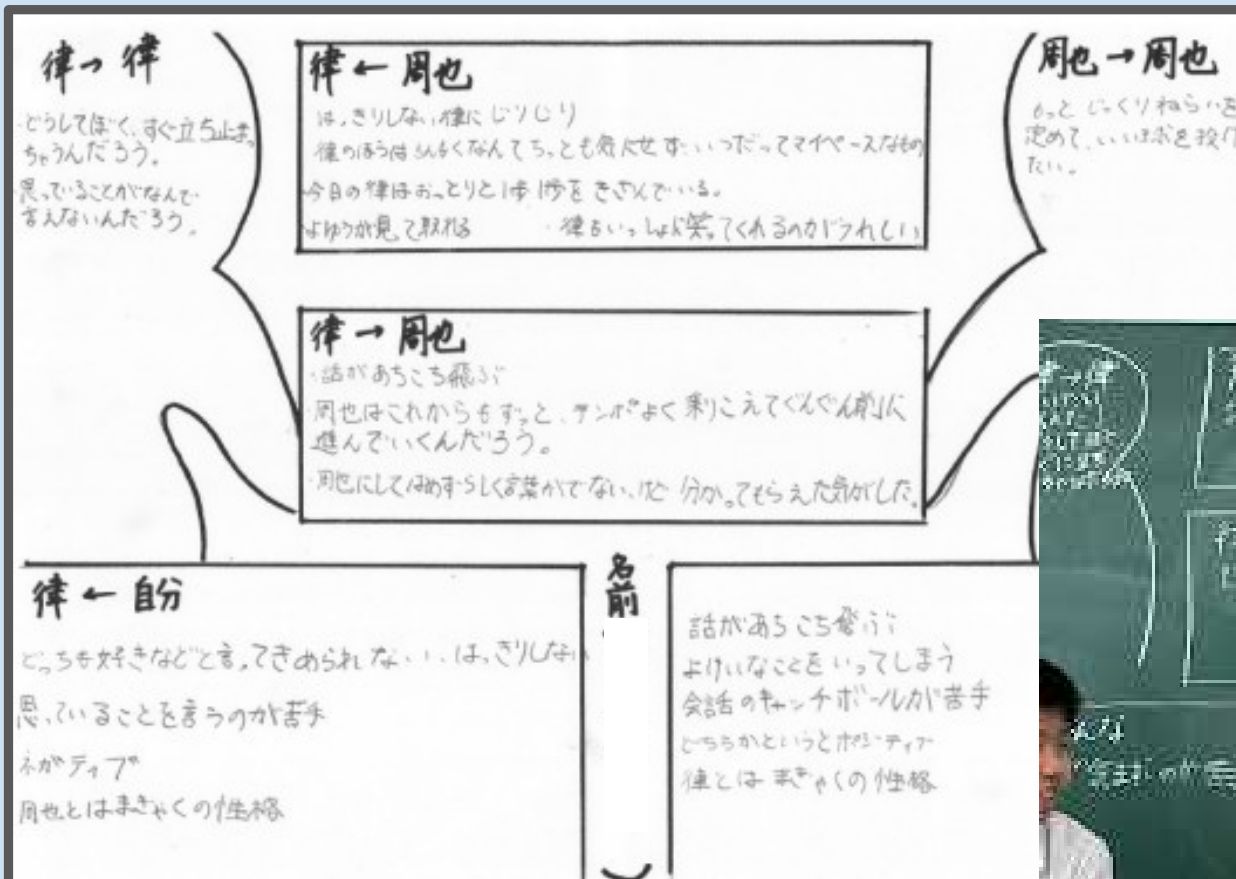 律→律
・どうしてぼく、すぐ立ち止まっ
ちゃうんだろう。
・思っていることがなんで
言えないんだろう。
律←周也
はっきりしない律にじりじり
律のほうはちんもくなんてちっとも気にせず、いつだってマイペースなもの
今日の律はおっとりと1歩1歩をきざんでいる。
よゆうが見て取れる ・律もいっしょに笑ってくれるのがうれしい
周也→周也
もっとじっくりねらいを
定めて、いい球を投げ
たい。
律→周也
・話があちこち飛ぶ
・周也はこれからもずっと、テンポよく乗りこえてぐんぐん前に
進んでいくんだろう。
・周也にしてはめずらしく言葉がでない、けど分かってもらえた気がした。
律←自分
どっちも好きなどと言ってきめられない、はっきりしない
思っていることを言うのが苦手
ネガティブ
周也とはまぎゃくの性格
名前
話があちこち飛ぶ
よけいなことをいってしまう
会話のキャッチボールが苦手
どちらかというとポジティブ
律とはまぎゃくの性格